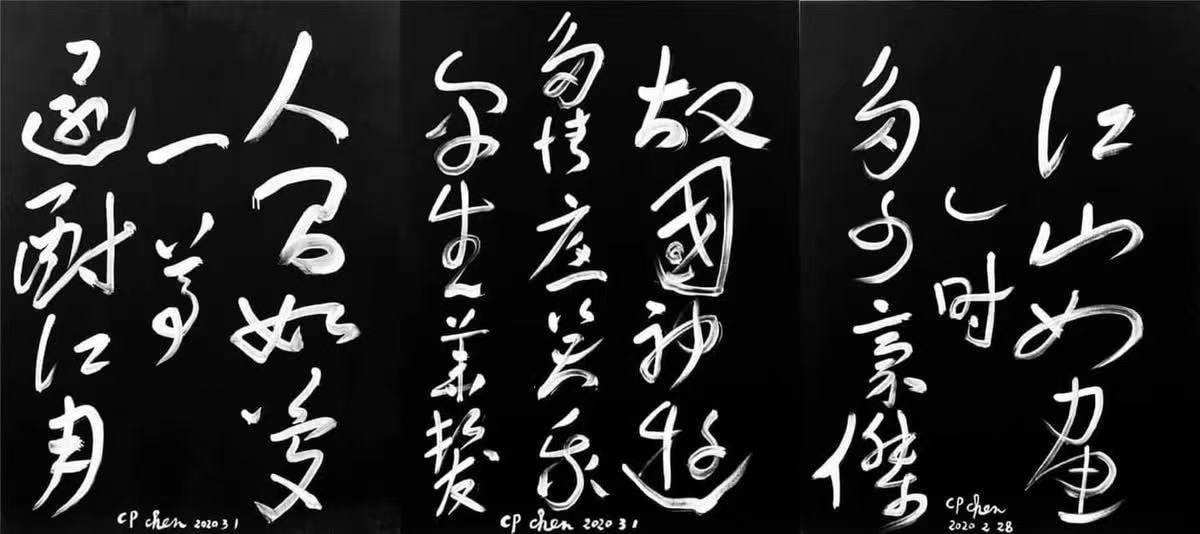 江山如畫
一時
多少豪傑
CP chen
2020 2 28
故國神遊
多情應笑我
早生華髮
CP chen 2020 3 1
人間如夢
一尊
還酹江月
CP chen 2020 3 1